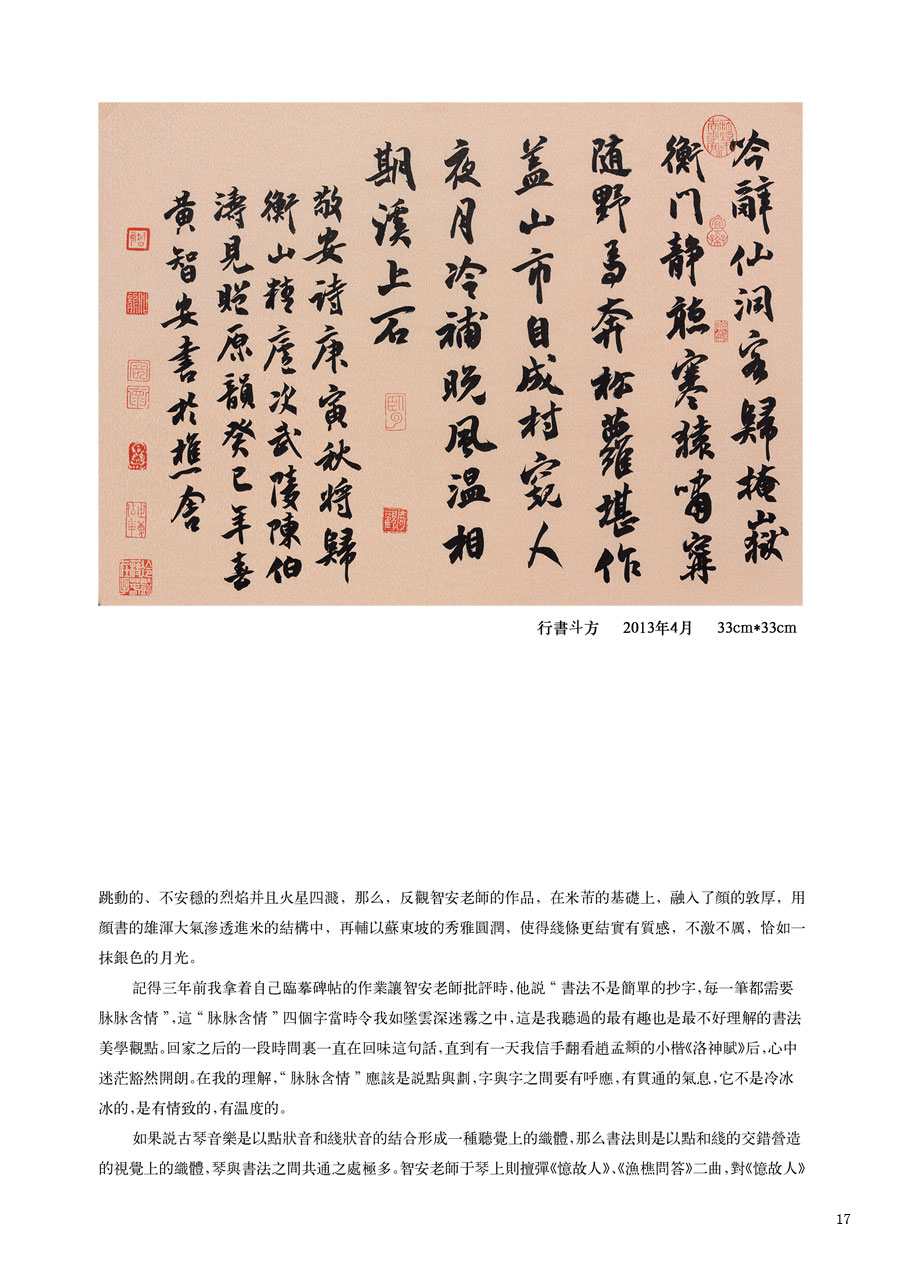 吟辭仙洞客歸掩嶽
衡門靜聽寒猿嘯寧
随野馬奔松蘿堪作
盖山市自成村窺人
夜月冷補晚風温相
期溪上石
敬安诗庚寅秋将歸
衡山精廬次武陵陳伯
濤見贈原韻癸巳年喜
黄智安書於樵舍
行書斗方 2013年4月 33cm*33cm
跳動的、不安穩的烈焰并且火星四濺，那么，反觀智安老師的作品，在米芾的基礎上，融入了顔的敦厚，用
顔書的雄渾大氣滲透進米的結構中，再輔以蘇東坡的秀雅圓潤，使得綫條更結實有質感，不激不厲，恰如一
抹銀色的月光。
記得三年前我拿着自己臨摹碑帖的作業讓智安老師批評時，他説“書法不是簡單的抄字，每一筆都需要
脉脉含情”，這“脉脉含情”四個字當時令我如墜雲深迷霧之中，這是我聽過的最有趣也是最不好理解的書法
美學觀點。回家之后的一段時間裏一直在回味這句話，直到有一天我信手翻看趙孟頫的小楷《洛神賦》后，心中
迷茫豁然開朗。在我的理解，“脉脉含情”應該是説點與劃，字與字之間要有呼應，有貫通的氣息，它不是冷冰
冰的，是有情致的，有温度的。
如果説古琴音樂是以點狀音和綫狀音的結合形成一種聽覺上的織體，那么書法則是以點和綫的交錯營造
的視覺上的織體，琴與書法之間共通之處極多。智安老師于琴上則擅彈《憶故人》、《漁樵問答》二曲，對《憶故人》
17